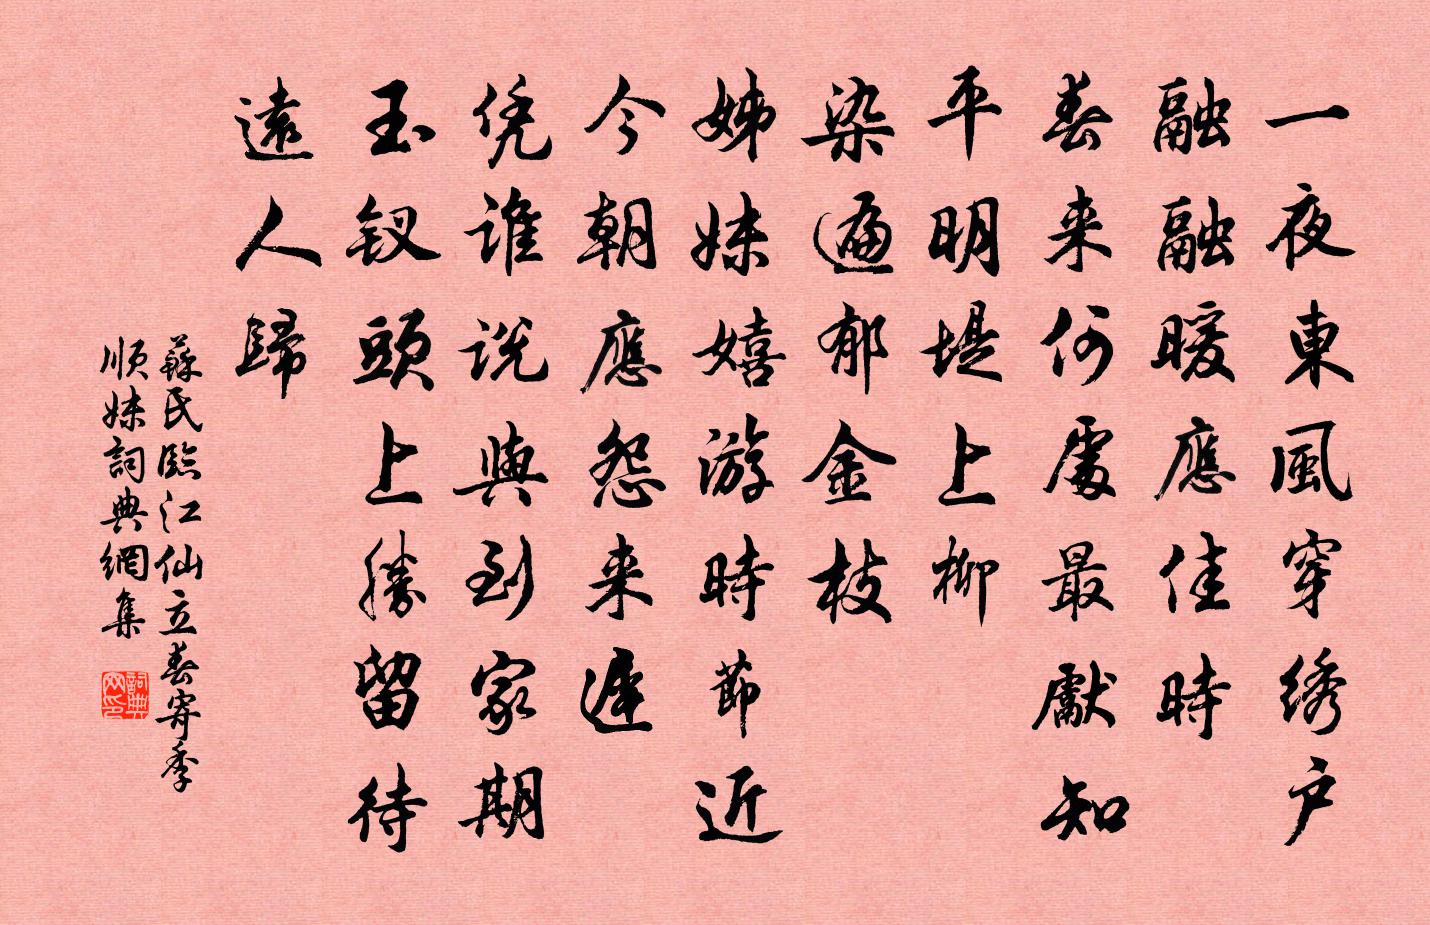 一夜東風穿绣户
融融暖應佳時
春来何處最獻知
平明堤上柳
染遍郁金枝
姊妹嬉游時節近
今朝應怨来遲
凭谁説與到家期
玉钗頭上勝留待
遠人歸
蘇氏臨江仙立春寄季
順妹詞典網集
詞典网印